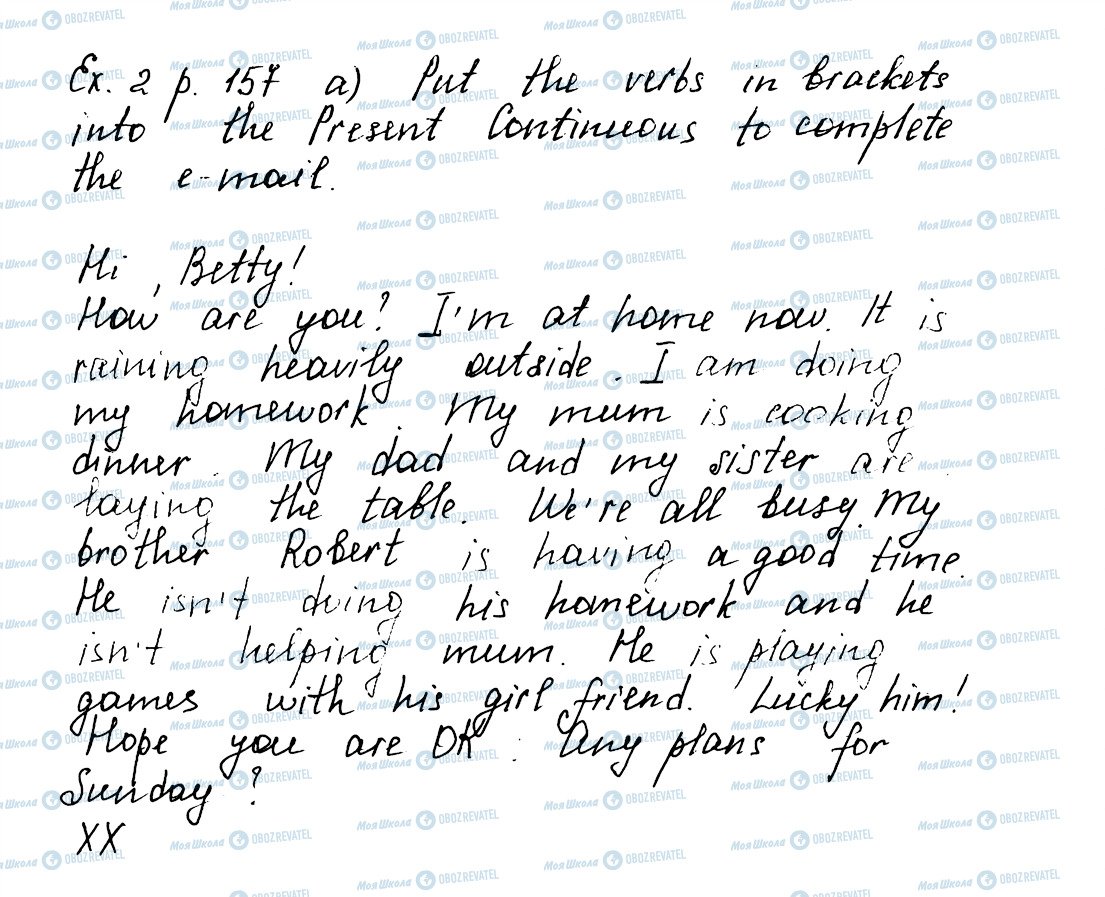 Ex. 2 p. 157 a) Put the verbs in brackets
into the Present Continuous to complete
the e-mail.
Hi, Betty!
How are you? I'm at home now. It is
raining heavily outside. I am doing
my homework. My mum is cooking
dinner. My dad and my sister are
laying the table. We're all busy. My
brother Robert is having a good time.
He isn't doing his homework and he
isn't helping mum. He is playing
games with his girl friend. Lucky him!
Hope you are OK. Any plans for
Sunday?
XX